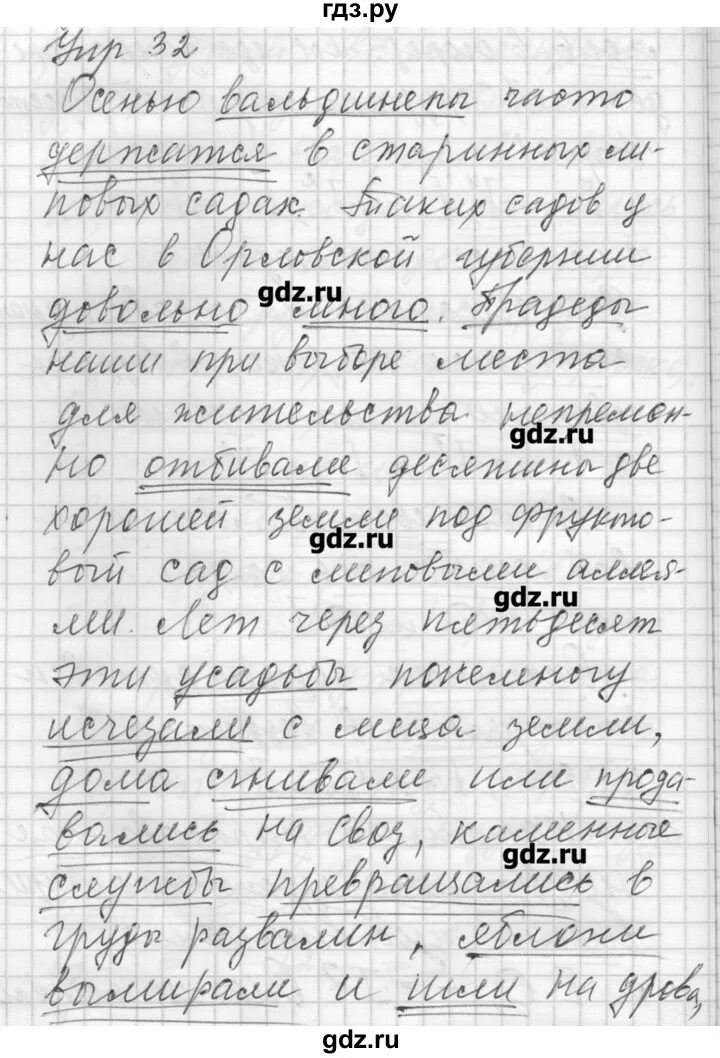 гдз.ру
Упр 32
Осенью вальдшнепы часто
держатся в старинных ли-
повых садах. Таких садов у
нас в Орловской губернии
gdz.ru
довольно много. Прадеды
наши при выборе места
для жительства непремен-
gdz.ru
но отбивали десятины две
хорошей земли под фрукто-
gdz.ru
вый сад с липовыми аллея-
gdz.ru
ми. Лет через пятьдесят
эти усадьбы понемногу
исчезали с лица земли,
дома сгнивали или прода-
вались на своз, каменные
gdz.ru
службы превращались в
груды развалин, яблони
вымирали и шли на дрова,
gdz.ru